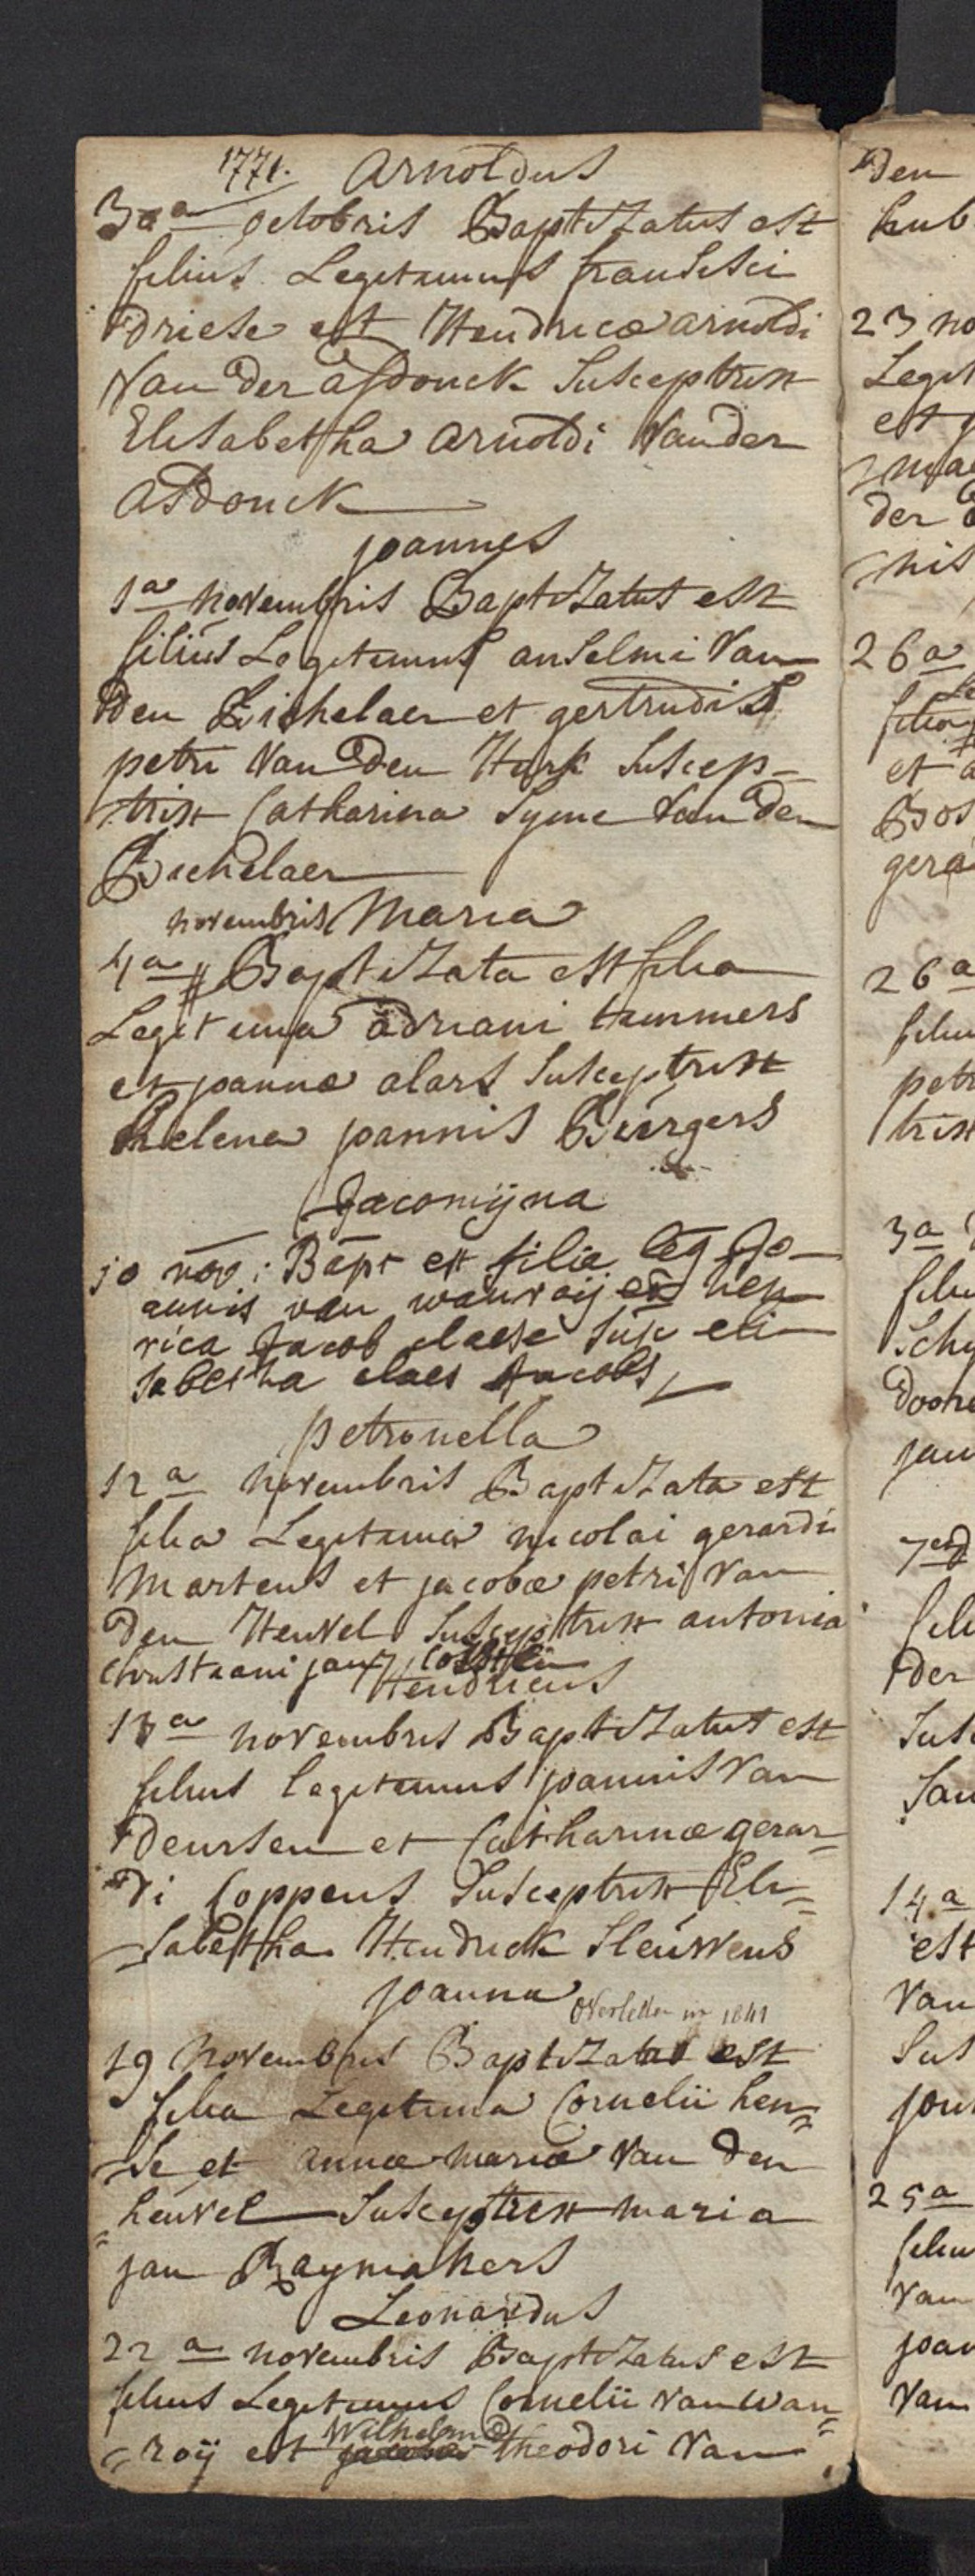 1771. Arnoldus
30a octobris Baptizatus est
filius Legitimus fransisci
driese est Hendricæ arnoldi
Van der asdonck Susceptrix
Elisabetha arnoldi Van der
asdonck
joannes
1a novembris Baptizatus est
filius Legitimus anselmi Van
den Eichelaer et gertrudis
petri Van den Hurk Suscep-
trix Catharina Syme Van den
Eichelaer
novembris Maria
4a # Baptizata est filia
Legitima adriani timmers
et joannæ alars Susceptrix
helena joannis Burgers
Jacomijna
10 nov: Bapt est filia leg Jo-
annis van wanroij et hen
rica Jacob claese sus eli
sabetha claes Jacobs
petronella
12a novembris Baptizata est
filia Legitima nicolai gerardi
Martens et jacobæ petri Van
den Heuvel Susceptrix antonia
christiani jan
Hendricus
novembris Baptizatus est
filius legitimus joannis Van
deursen et Catharinæ gerar-
di Coppens Susceptrix Eli=
sabetha Hendrick Sleuwens
joanna
Overleden in 1841
19 novembris Baptizata est
filia Legitima Cornelii hen=
se et annæ mariæ Van den
heuvel Susceptrix maria
jan Raymakers
Leonardus
22a novembris Baptizatus est
filius Legitimus Cornelii Van Wan=
roij est Wilhelmæ theodori Van
den
hub
23 no
Legit
est
der
nis
26a
filia
et a
Bos
gera
26a
filiu
petr
trix
3a
filiu
Schy
doore
jan
fili
der
Sus
14a
est
Van
Sus
25a
filiu
Van
joan
Van